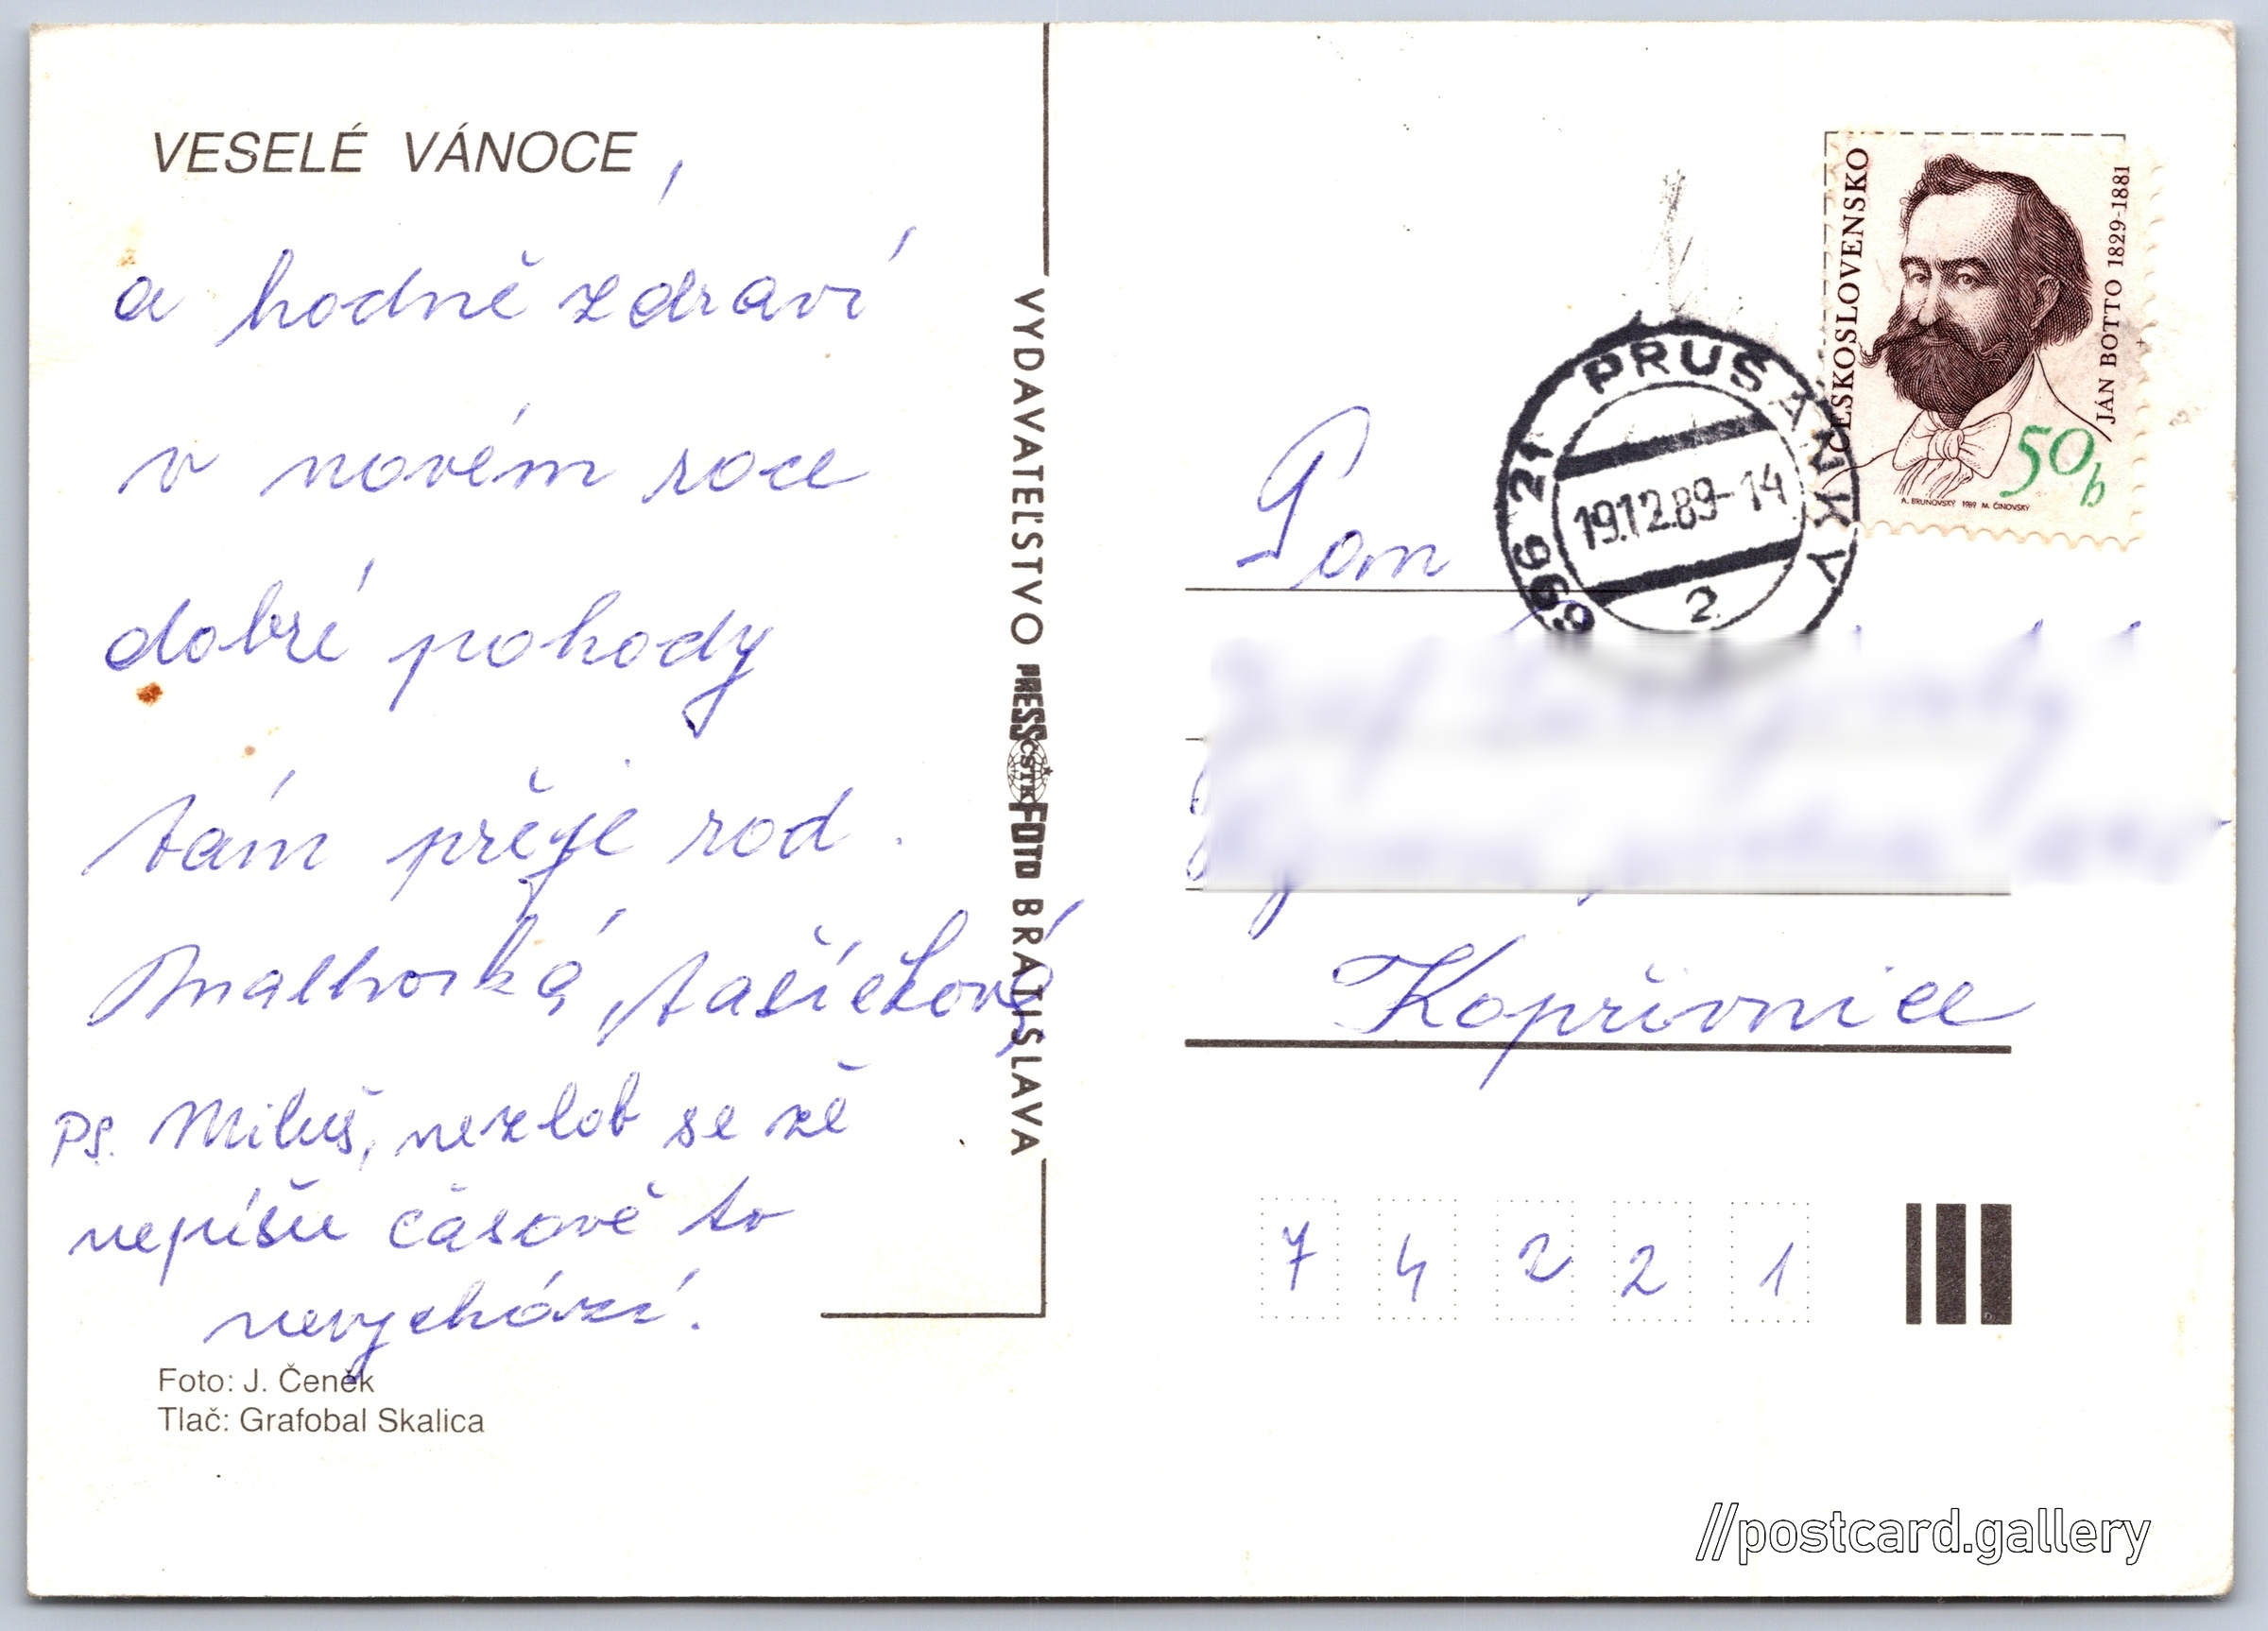 VESELÉ VÁNOCE,
a hodně zdraví
v novém roce
dobré pohody
Vám přeje rod.
Malhocká, Vašíčková
PS. Miluš, nezlob se že
nepíšu časově to
nevychází.
Foto: J. Čeněk
Tlač: Grafobal Skalica
VYDAVATEĽSTVO PRESSFOTO BRATISLAVA
ČSTK
ČESKOSLOVENSKO
JÁN BOTTO 1829-1881
50h
A. BRUNOVSKÝ 1989 M. ČINOVSKÝ
696 21 PRUŠÁNKY
19.12.89-14
2
Pan
Kopřivnice
7 4 2 2 1
//postcard.gallery